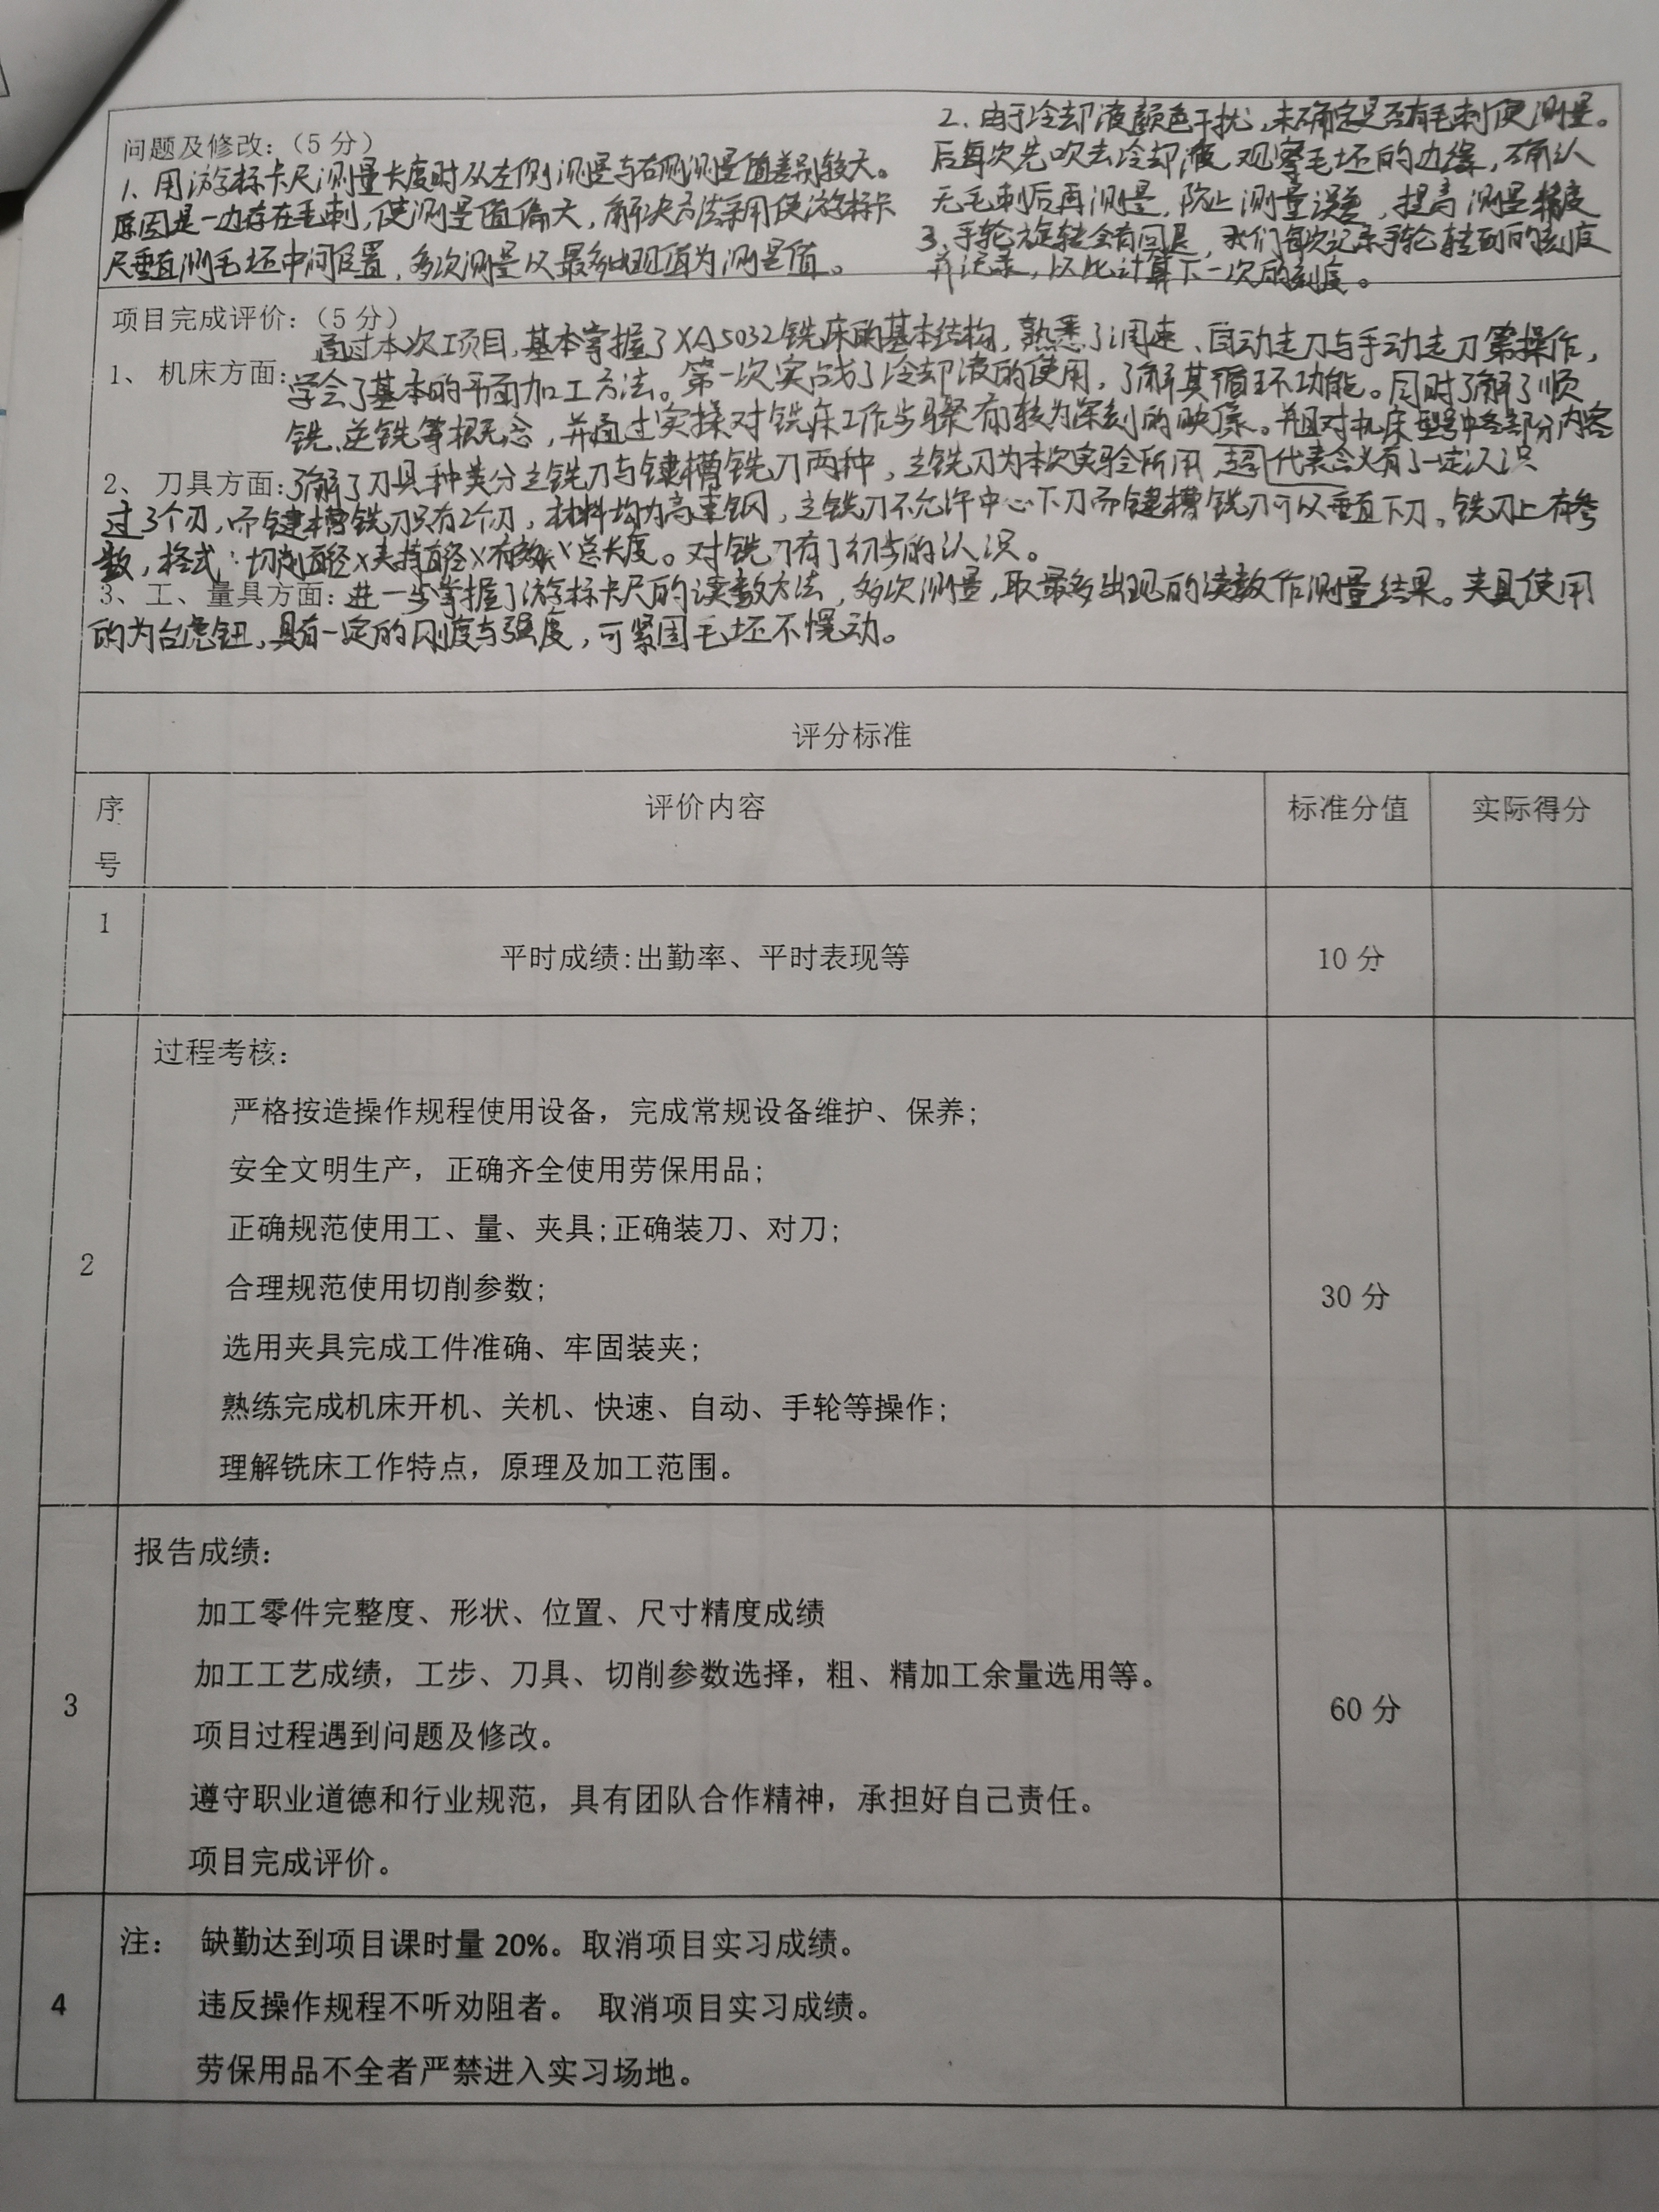 问题及修改：（5分）
1、用游标卡尺测量长度时从左侧测量与右侧测量值差别较大。
原因是一边存在毛刺，使测量值偏大，解决方法采用使游标卡
尺垂直测毛坯中间位置，多次测量以最多出现值为测量值。
2、由于冷却液颜色干扰，未确定是否有毛刺便测量。
后每次先吹去冷却液，观察毛坯的边缘，确认
无毛刺后再测量，防止测量误差，提高测量精度
3、手轮旋转会有回退，我们每次记录手轮转到的刻度
并记录，以此计算下一次的刻度。
项目完成评价：（5分）
通过本次工项目，基本掌握了XA5032铣床的基本结构，熟悉了调速、自动走刀与手动走刀等操作，
1、 机床方面：学会了基本的平面加工方法。第一次实战了冷却液的使用，了解其循环功能。同时了解了顺
铣、逆铣等概念，并通过实操对铣床工作步骤有较为深刻的映像。并且对机床型号中各部分内容
代表含义有了一定认识
2、 刀具方面：了解了刀具种类分立铣刀与键槽铣刀两种，立铣刀为本次实验所用，超
过3个刃，而键槽铣刀只有2个刃，材料均为高速钢，立铣刀不允许中心下刀而键槽铣刀可以垂直下刀。铣刀上有参
数，格式：切削直径×夹持直径×有效长×总长度。对铣刀有了初步的认识。
3、工、量具方面：进一步掌握了游标卡尺的读数方法，多次测量，取最多出现的读数作测量结果。夹具使用
的为台虎钮，具有一定的刚度与强度，可紧固毛坯不慌动。
评分标准
序号 评价内容 标准分值 实际得分
1 平时成绩：出勤率、平时表现等 10分
2 过程考核：
严格按造操作规程使用设备，完成常规设备维护、保养；
安全文明生产，正确齐全使用劳保用品；
正确规范使用工、量、夹具；正确装刀、对刀；
合理规范使用切削参数； 30分
选用夹具完成工件准确、牢固装夹；
熟练完成机床开机、关机、快速、自动、手轮等操作；
理解铣床工作特点，原理及加工范围。
3 报告成绩：
加工零件完整度、形状、位置、尺寸精度成绩
加工工艺成绩，工步、刀具、切削参数选择，粗、精加工余量选用等。
项目过程遇到问题及修改。 60分
遵守职业道德和行业规范，具有团队合作精神，承担好自己责任。
项目完成评价。
4 注： 缺勤达到项目课时量20%。取消项目实习成绩。
违反操作规程不听劝阻者。 取消项目实习成绩。
劳保用品不全者严禁进入实习场地。